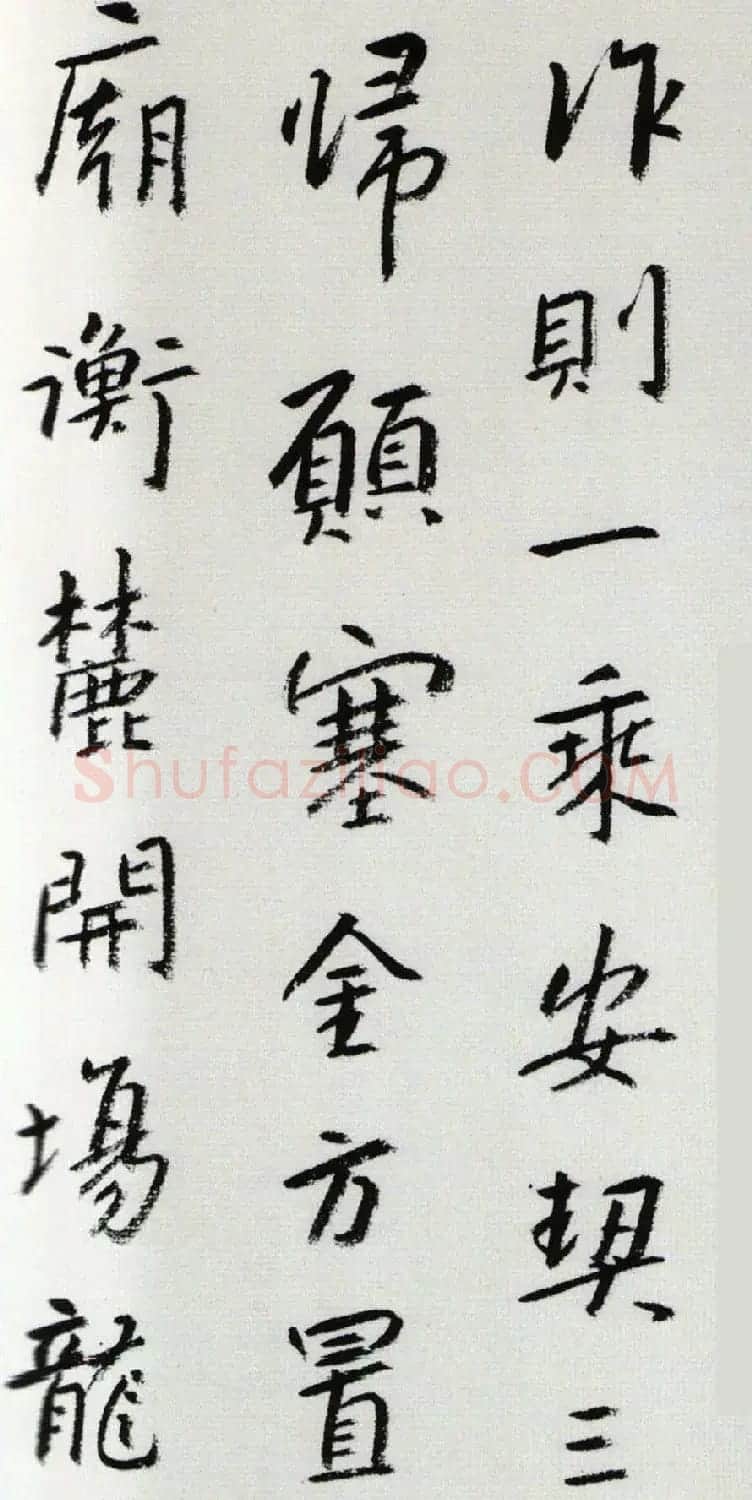 作則一乘安契三
歸願塞全方置
廟衡麓開場龍
Shufaziliao.COM